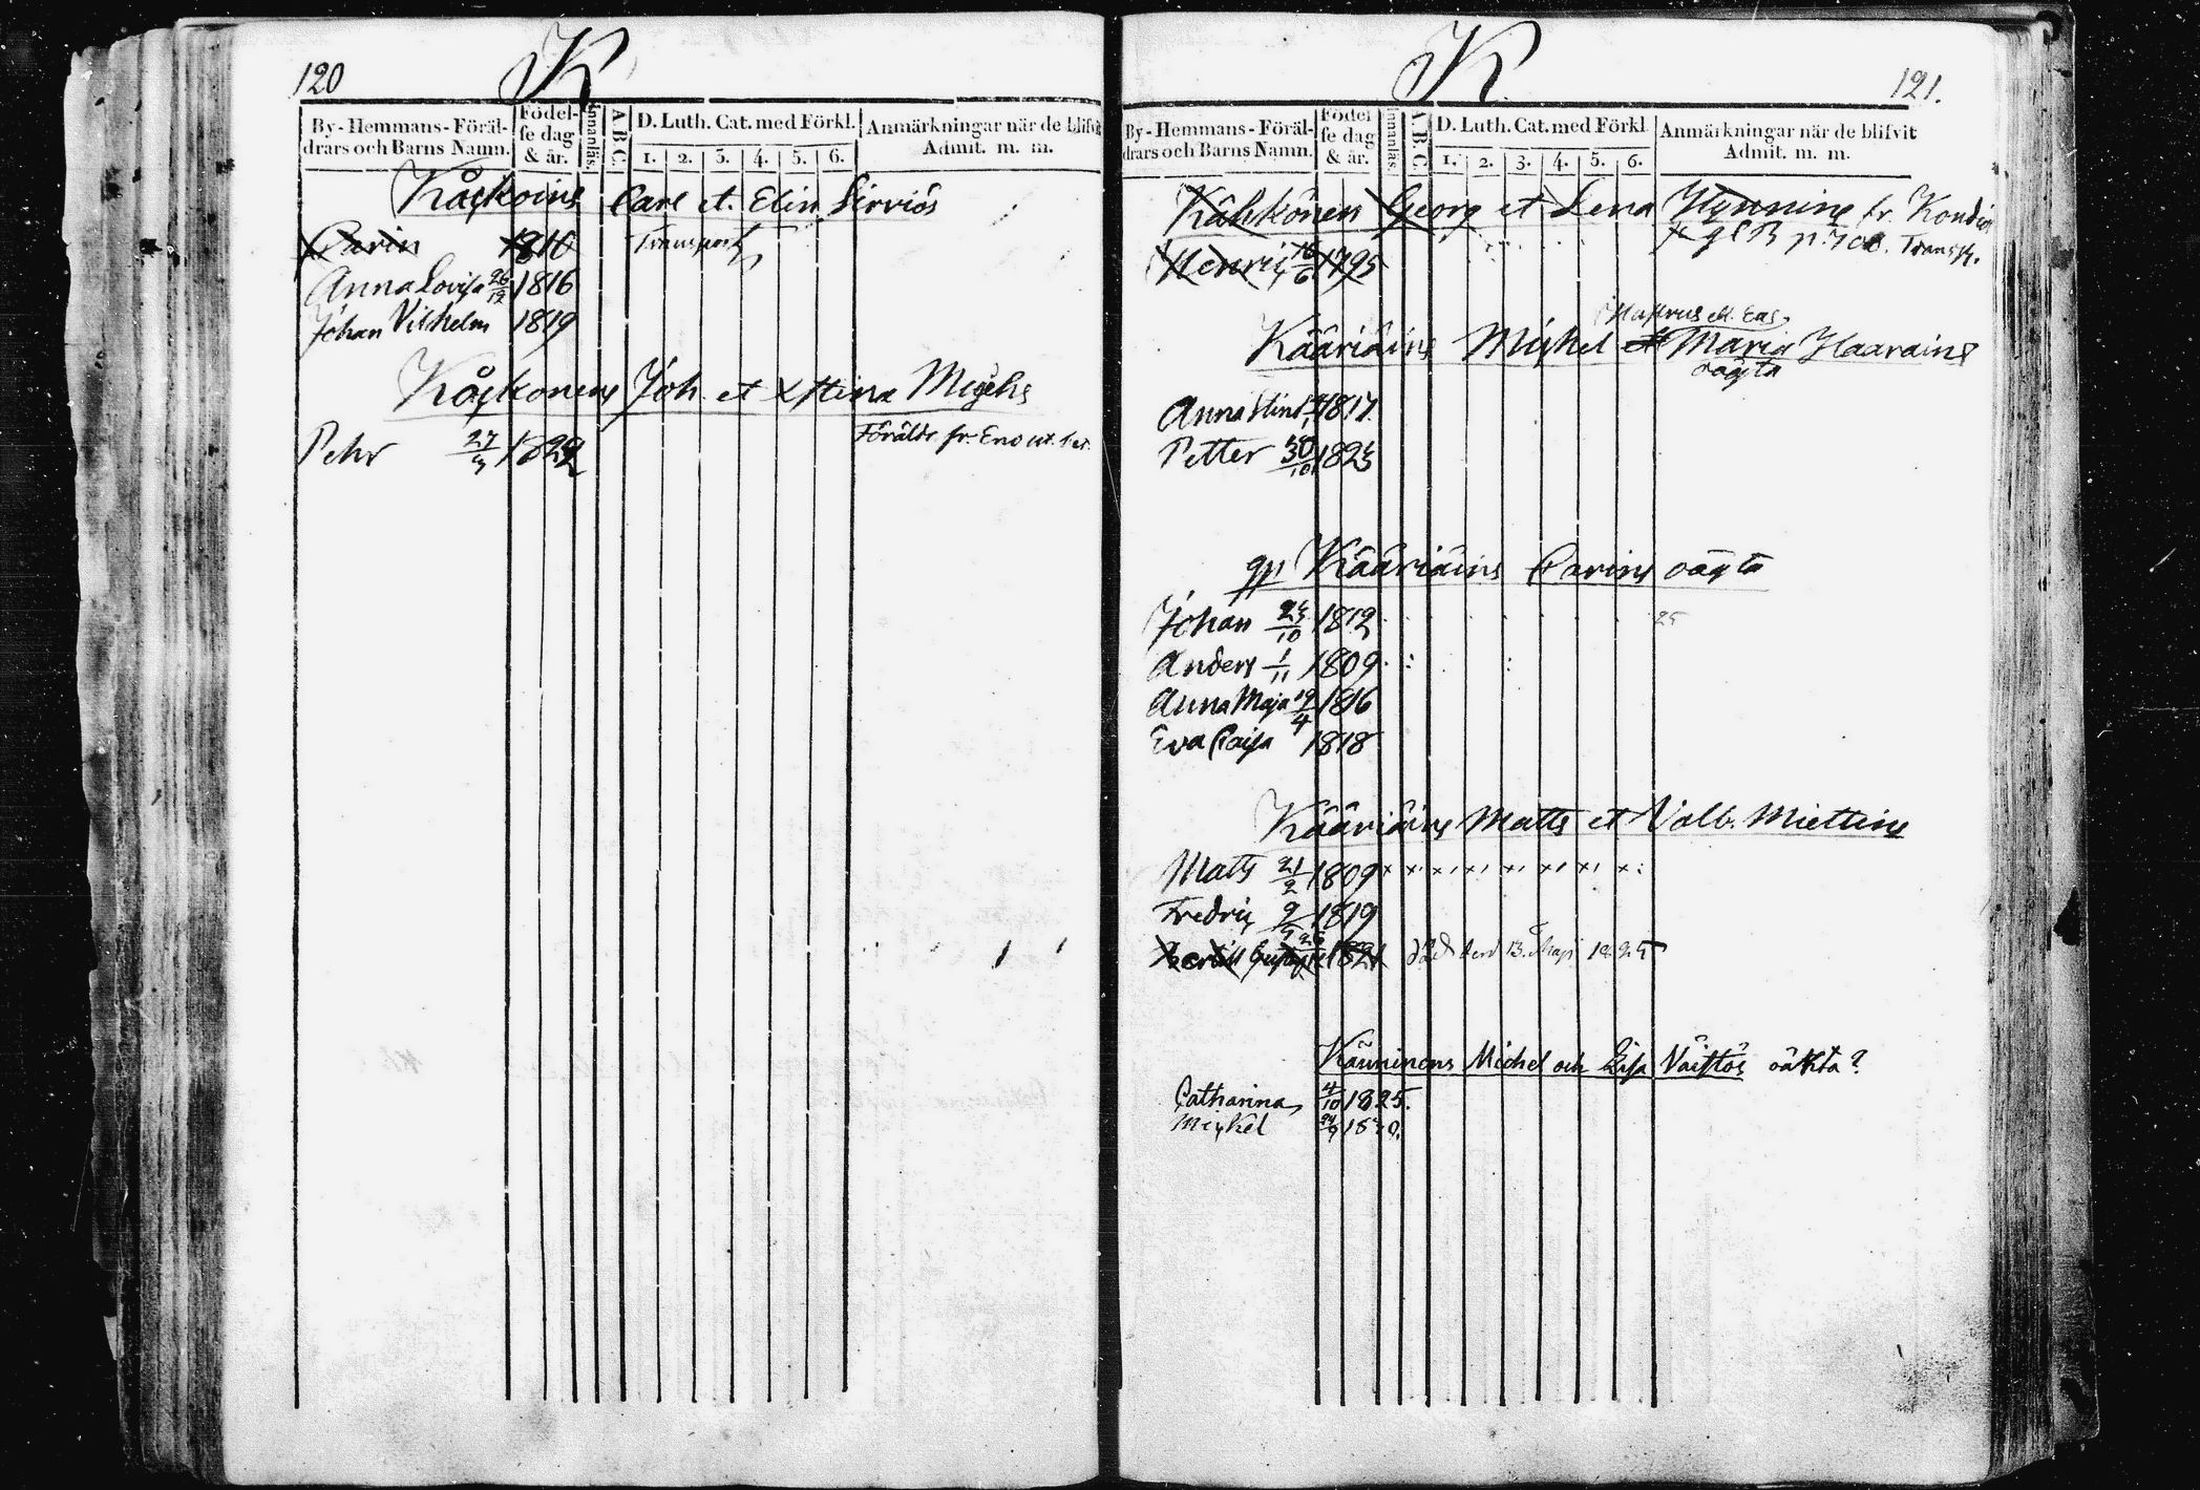 120
K
By-Hemmans-Föräl-
drars och Barns Namn.
Födel-
se dag
& år.
Innanläs.
A B C
D. Luth. Cat. med Förkl.
1. 2. 3. 4. 5. 6.
Anmärkningar när de blifvit
Admit. m. m.
Carl et. Elin Sirviös
Carin 1810 Transport
Anna Lovisa 26/12 1816
Johan Vilhelm 1819
Joh. et Michs
Pehr 1822
Föräldr. fr. Eno
K.
121.
By-Hemmans-Föräl-
drars och Barns Namn.
Födel
se dag
& år.
Innanläs.
A B C
D. Luth. Cat. med Förkl.
1. 2. 3. 4. 5. 6.
Anmärkningar när de blifvit
Admit. m. m.
Kähkönen Georg et Lena fr.
p. 700. Transp.
Henric 16/6 1795
Kääriäins Michel et Maria Haarains
oägta
Anna Stin 1817
Petter 30/10 1823
Kääriäins Carins oägta
Johan 23/10 1812
25
Anders 1/11 1809
Anna Maja 19/4 1816
Eva Caisa 1818
Kääriäins Matts et Valb. Miettins
Matts 21/2 1809 x x x x x x x x
Fredric 1819
1821 död den 13. Maji 1825
Michel och Lisa oäkta?
Catharina 4/10 1825.
Michel